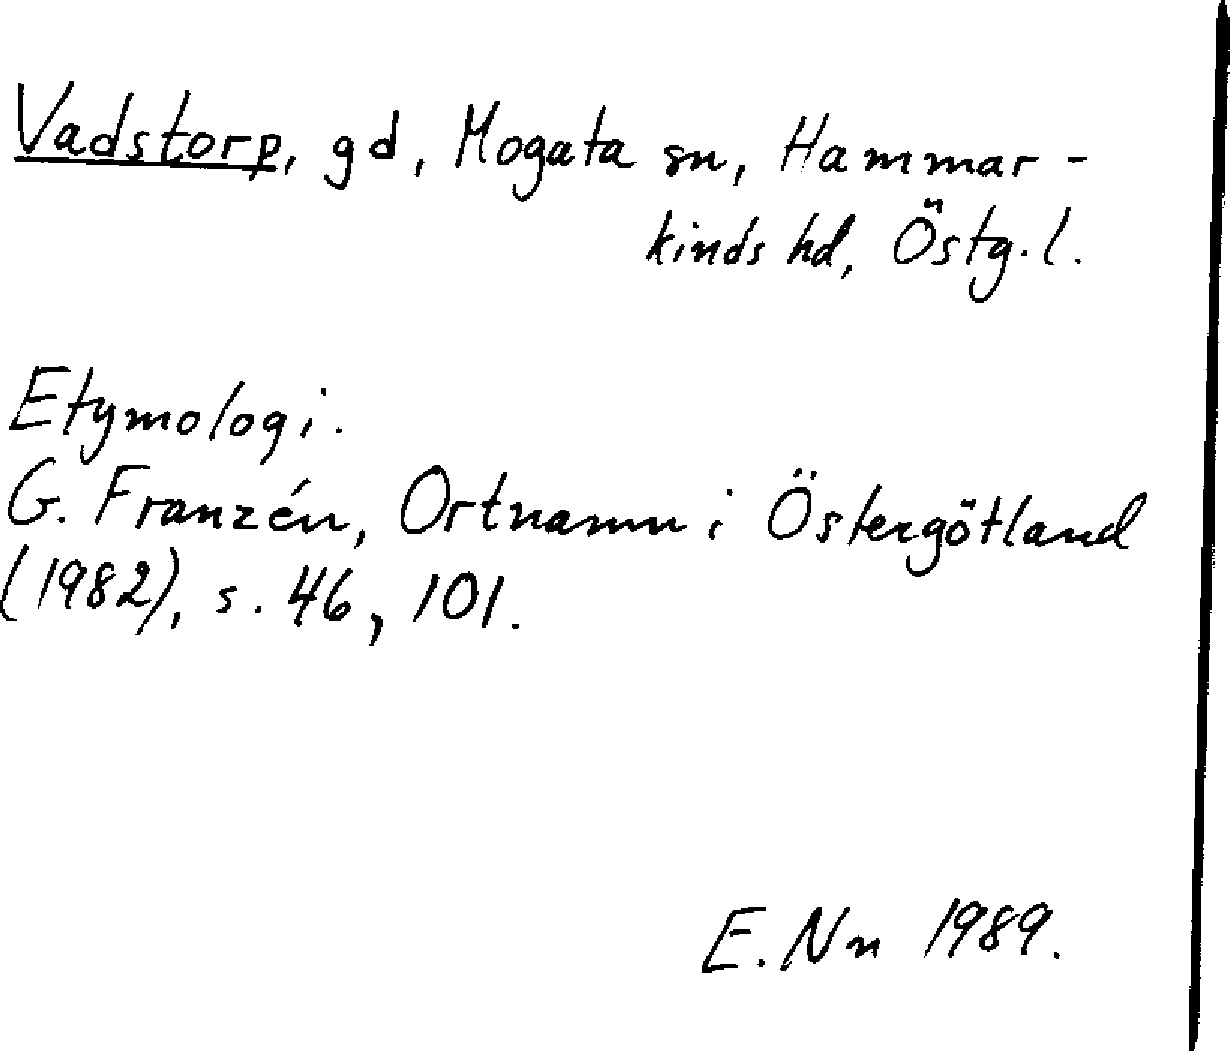 Vadstorp, gd, Mogata sn, Hammar-
kinds hd, Östg. l.
Etymologi.
G. Franzén, Ortnamn i Östergötland
(1982), s. 46, 101.
E. Nn 1989.